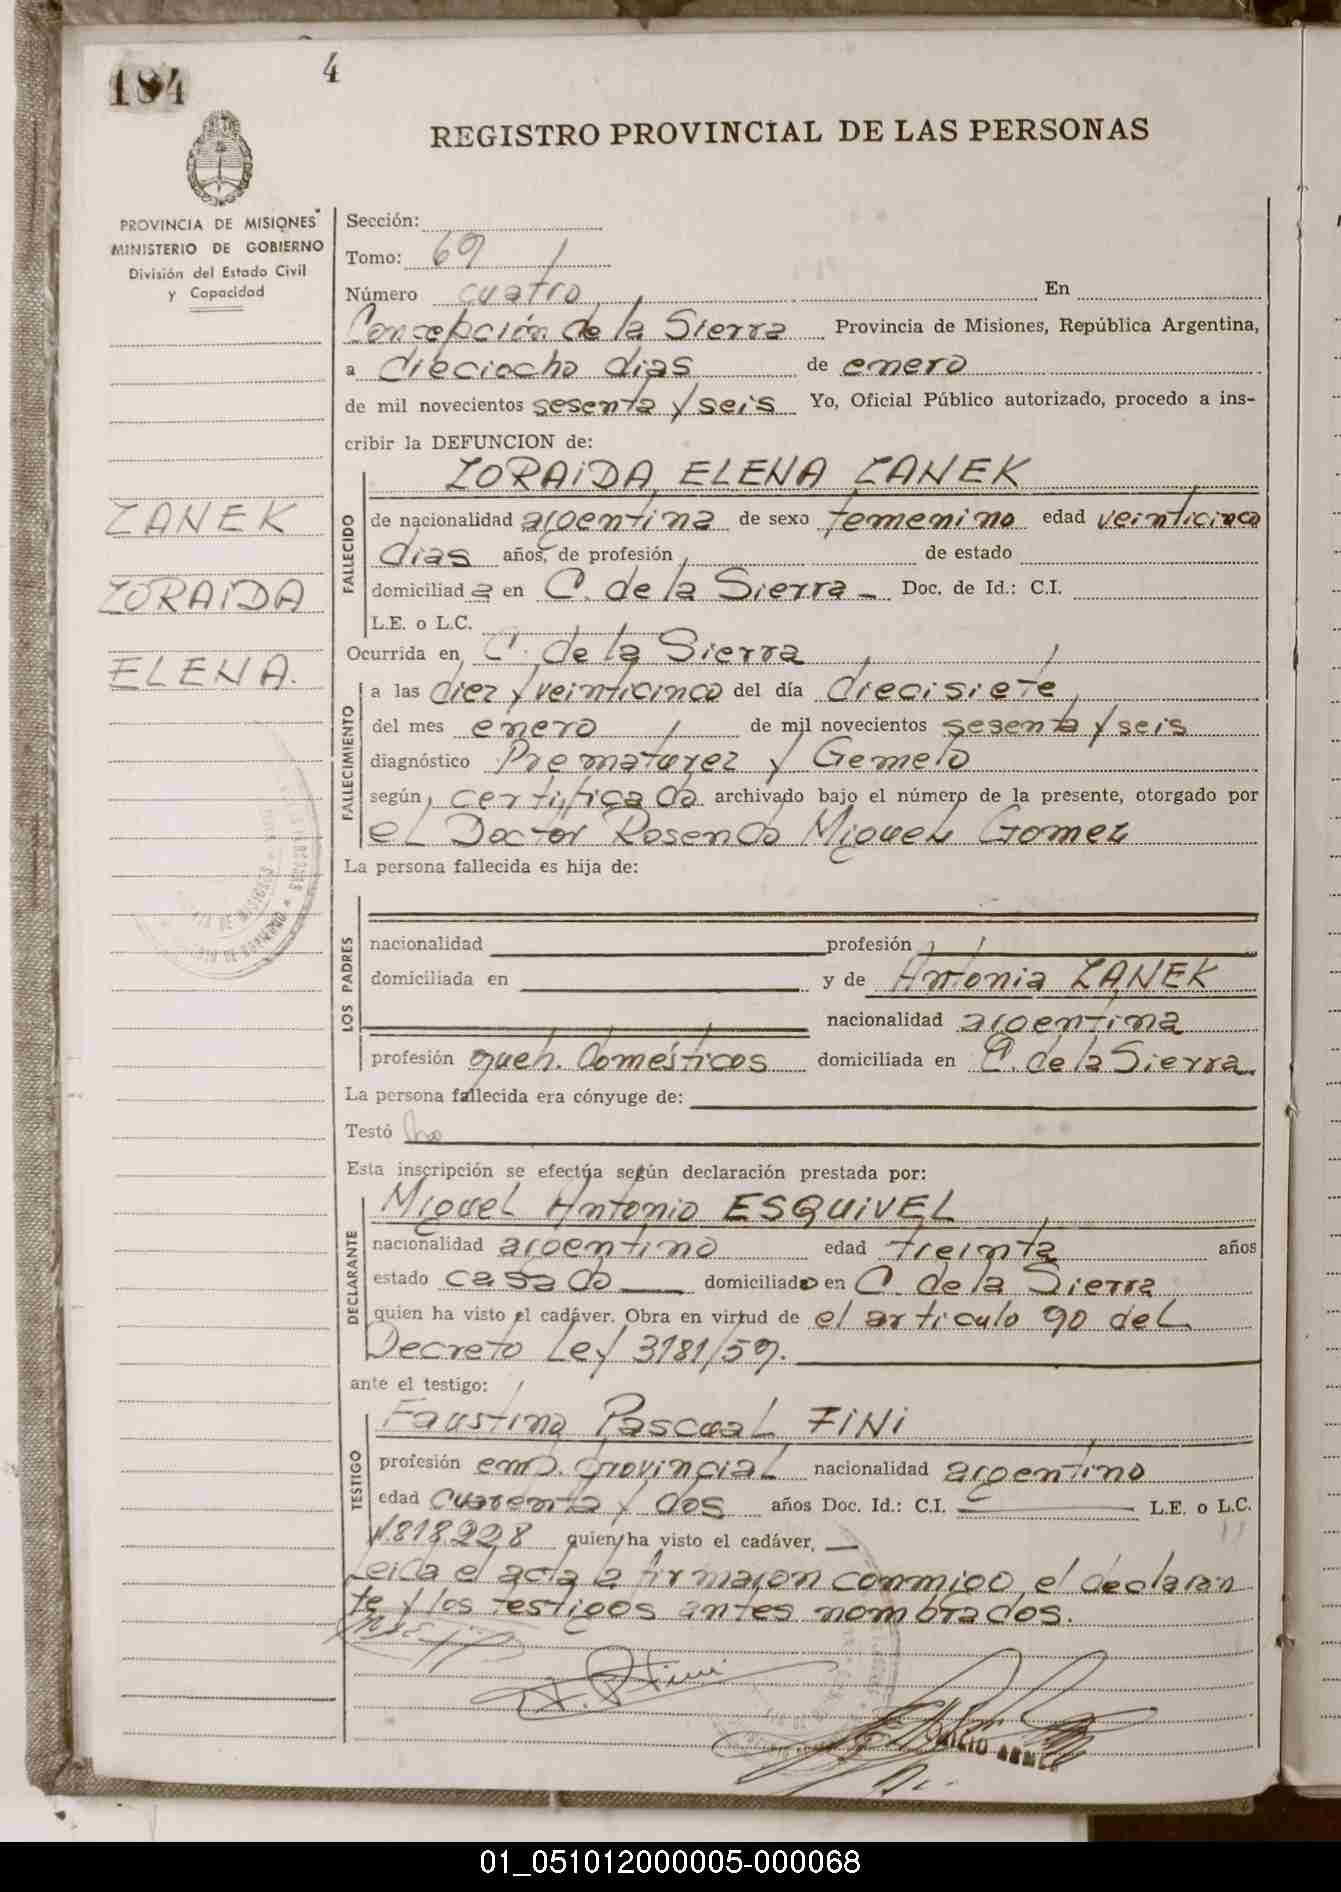 184
4
REGISTRO PROVINCIAL DE LAS PERSONAS
PROVINCIA DE MISIONES
MINISTERIO DE GOBIERNO
División del Estado Civil
y Capacidad
ZANEK
ZORAIDA
ELENA.
Sección:
Tomo: 69
Número cuatro En
Concepción de la Sierra Provincia de Misiones, República Argentina,
a dieciocho dias de enero
de mil novecientos sesenta y seis Yo, Oficial Público autorizado, procedo a ins-
cribir la DEFUNCION de:
FALLECIDO
ZORAIDA ELENA ZANEK
de nacionalidad argentina de sexo femenino edad veinticinco
dias años, de profesión de estado
domiciliad a en C. de la Sierra - Doc. de Id.: C.I.
L.E. o L.C.
Ocurrida en C. de la Sierra
FALLECIMIENTO
a las diez y veinticinco del día diecisiete
del mes enero de mil novecientos sesenta y seis
diagnóstico Prematurez y Gemelo
según certificado archivado bajo el número de la presente, otorgado por
el Doctor Rosendo Miguel Gomez
La persona fallecida es hija de:
LOS PADRES
nacionalidad profesión
domiciliada en y de Antonia ZANEK
nacionalidad argentina
profesión queh. domésticos domiciliada en C. de la Sierra
La persona fallecida era cónyuge de:
Testó no
Esta inscripción se efectúa según declaración prestada por:
DECLARANTE
Miguel Antonio ESQUIVEL
nacionalidad argentino edad treinta años
estado casado domiciliado en C. de la Sierra
quien ha visto el cadáver. Obra en virtud de el articulo 90 del
Decreto Ley 3181/59.
ante el testigo:
TESTIGO
Faustino Pascual FINI
profesión emp. provincial nacionalidad argentino
edad cuarenta y dos años Doc. Id.: C.I. L.E. o L.C.
818.228 quien ha visto el cadáver,
Leida el acta la firmaron conmigo el declaran
te y los testigos antes nombrados.
01_051012000005-000068